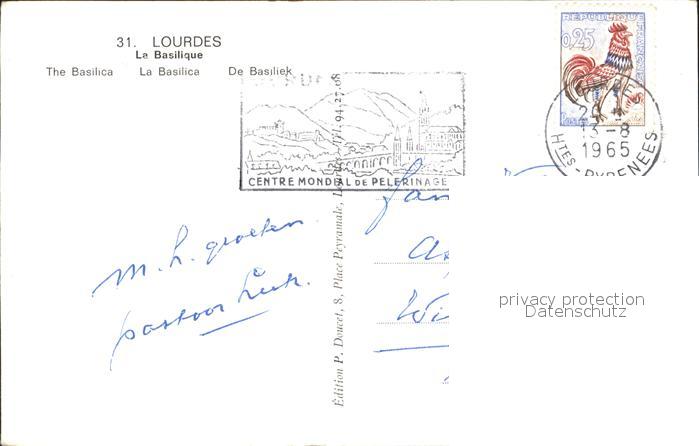 31. LOURDES
La Basilique
The Basilica La Basilica De Basiliek
RÉPUBLIQUE FRANÇAISE
0,25
13-8
1965
HTES-PYRENEES
CENTRE MONDIAL DE PELERINAGE
Édition P. Doucet, 8, Place Peyramale, Lourdes - Tél. 94.27.08
m. h. groeten
pastoor
Fam
As
Wi
privacy protection
Datenschutz